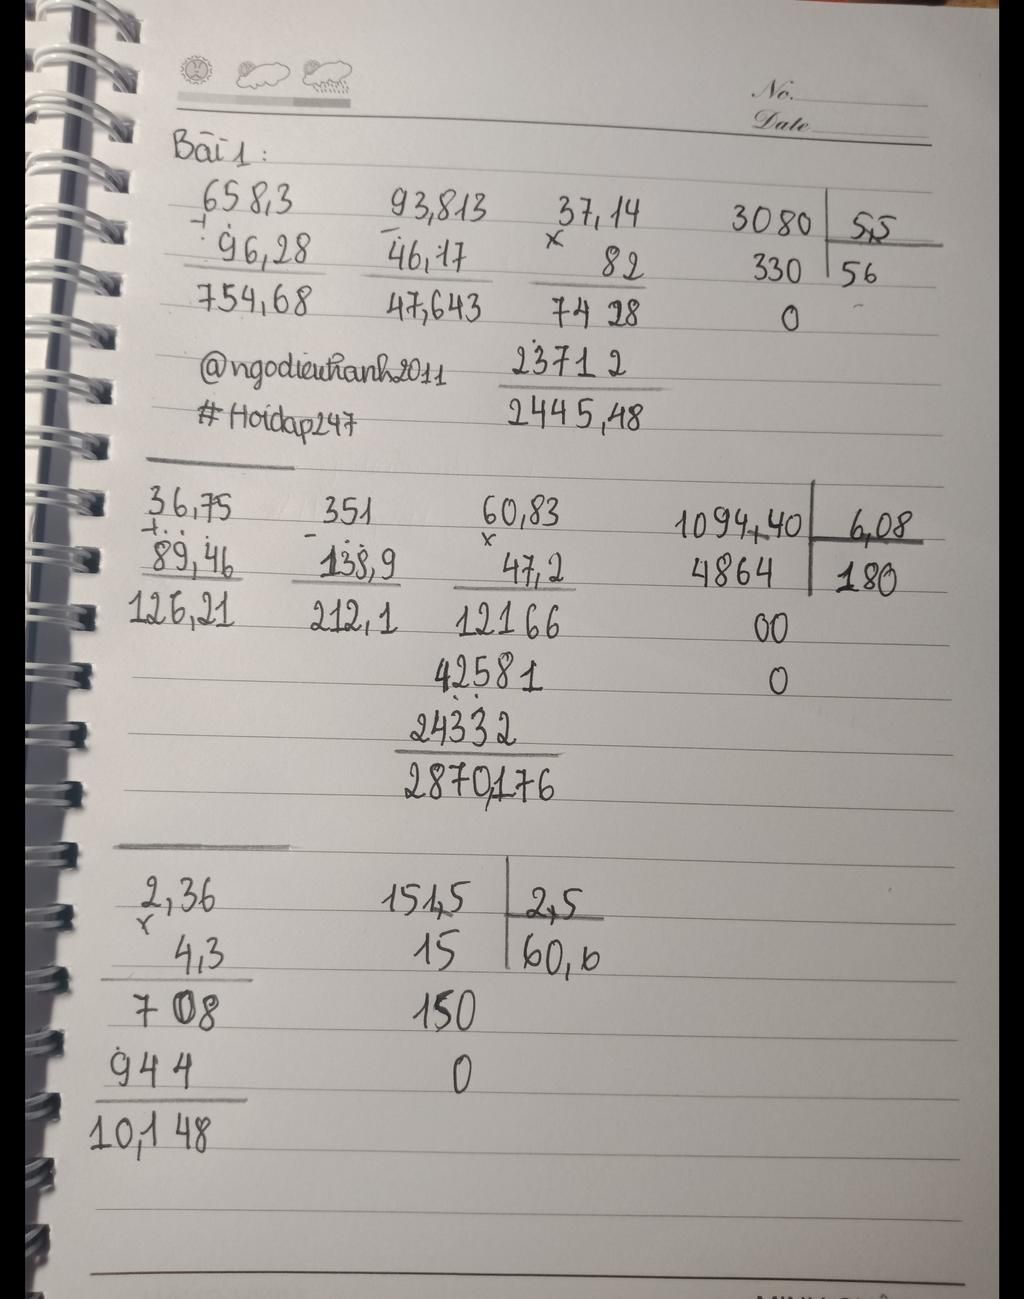 No.
Date
Bài 1:
658,3 93,813 37,14 3080 5,5
+ 96,28 - 46,17 x 82 330 56
754,68 47,643 74 28 0
@ngodieukhanh2011 2371 2
#Hoidap247 2445,48
36,75 351 60,83 1094,40 6,08
+ 89,46 - 138,9 x 47,2 4864 180
126,21 212,1 12166 00
42581 0
24332
2870,176
2,36 151,5 2,5
x 4,3 15 60,6
7 08 150
944 0
10,148